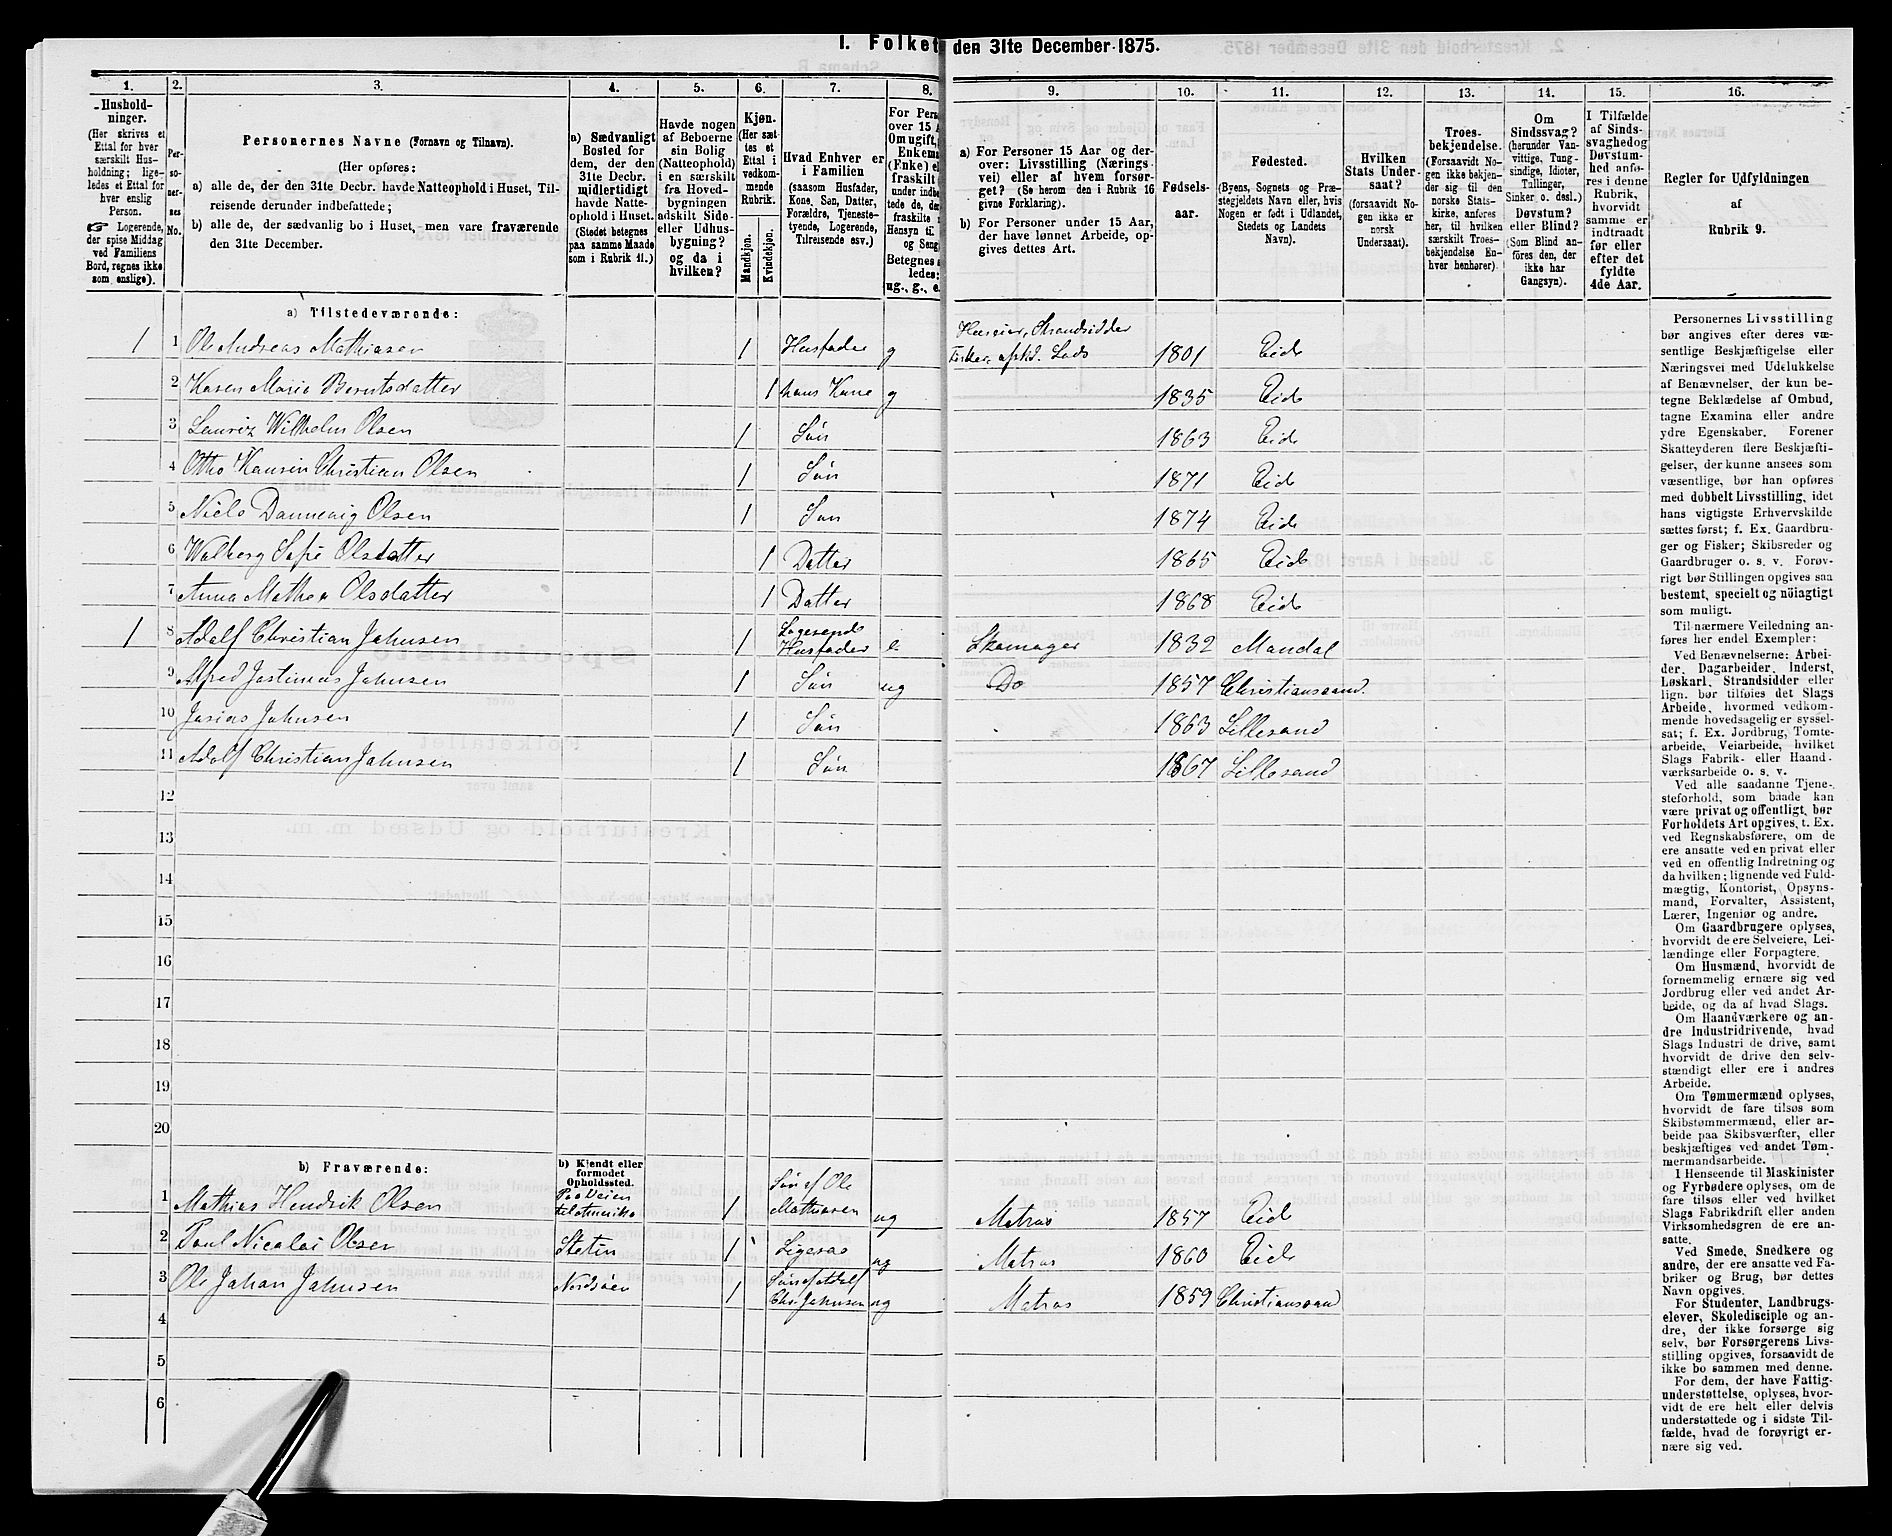 I. Folket den 31te December 1875.
1. 2. 3. 4. 5. 6. 7. 8. 9. 10. 11. 12. 13. 14. 15. 16.
Husholdninger.
(Her skrives et
Ettal for hver
særskilt Husholdning; ligeledes
et Ettal for
hver enslig
Person.
Logerende,
der spise Middag
ved Familiens
Bord, regnes ikke
som enslige).
Personernes
No.
Personernes Navne (Fornavn og Tilnavn).
(Her opføres:
a) alle de, der den 31te Decbr. havde Natteophold i Huset, Tilreisende derunder indbefattede;
b) alle de, der sædvanlig bo i Huset, men vare fraværende
den 31te December.
a) Sædvanligt
Bosted for
dem, der den
31te Decbr.
midlertidigt
havde Natteophold
i Huset.
(Stedet betegnes
paa samme Maade
som i Rubrik 11.)
Havde nogen
af Beboerne
sin Bolig
(Natteophold)
i en særskilt
fra Hovedbygningen
adskilt Side-
eller Udhusbygning?
og da i
hvilken?
Kjøn.
(Her sættes
et
Ettal i
vedkommende
Rubrik.
Mandkjøn.
Kvindekjøn.
Hvad Enhver er
i Familien
(saasom Husfader,
Kone, Søn, Datter,
Forældre, Tjenestetyende,
Logerende,
Tilreisende osv.)
For Pers
over 15 A
Om ugift,
Enkema
(Enke) el
fraskilt
under indbe
tede de, de
fraskilte
Hensyn ti
og Seng
Betegnes s
ledes:
ug., g., e.
a) For Personer 15 Aar og derover:
Livsstilling (Næringsvei)
eller af hvem forsørget?
(Se herom den i Rubrik 16
givne Forklaring).
b) For Personer under 15 Aar,
der have lønnet Arbeide, opgives
dettes Art.
Fødselsaar.
Fødested.
(Byens, Sognets og Præstegjeldets
Navn eller, hvis
Nogen er født i Udlandet,
Stedets og Landets
Navn).
Hvilken
Stats Undersaat?
(forsaavidt Nogen
ikke er
norsk
Undersaat).
Troesbekjendelse.
(Forsaavidt Nogen
ikke bekjender
sig til den
norske Statskirke,
anføres
her, til hvilken
særskilt Troesbekjendelse
Enhver
henhører).
Om
Sindssvag?
(herunder Vanvittige,
Tungsindige,
Idioter,
Tullinger,
Sinker o. desl.)
Døvstum?
eller Blind?
(Som Blind anføres
den, der
ikke har
Gangsyn).
I Tilfælde
af Sindssvaghed
og
Døvstumhed
anføres
i denne
Rubrik,
hvorvidt
samme er
indtraadt
før eller
efter det
fyldte
4de Aar.
Regler for Udfyldningen
af
Rubrik 9.
a) Tilstedeværende:
1 1 Ole Andreas Mathiasen 1 Husfader g Huseier, Strandsidder
Fisker, afskd. Lods 1801 Eide
2 Karen Marie Berntsdatter 1 hans Kone g 1835 Eide
3 Lauriz Wilhelm Olsen 1 Søn 1863 Eide
4 Otto Christian Olsen 1 Søn 1871 Eide
5 Niels Dannevig Olsen 1 Søn 1874 Eide
6 Walborg Sofie Olsdatter 1 Datter 1865 Eide
7 Anna Mathea Olsdatter 1 Datter 1868 Eide
1 8 Adolf Christian Jahnsen 1 Logerende
Husfader e. Skomager 1832 Mandal
9 Alfred Jahnsen 1 Søn ug Do 1857 Christianssand.
10 Josias Jahnsen 1 Søn 1863 Lillesand
11 Adolf Christian Jahnsen 1 Søn 1867 Lillesand
12
13
14
15
16
17
18
19
20
b) Fraværende:
b) Kjendt eller
formodet
Opholdssted.
1 Mathias Hendrik Olsen Paa Veien
til Amerika 1 Søn af Ole
Mathiasen ug Matros 1857 Eide
2 Poul Nicolai Olsen Stetin 1 Ligesaa ug Matros 1860 Eide
3 Ole Johan Jahnsen Nordsøen 1 Søn af Adolf
Chr. Jahnsen ug Matros 1859 Christianssand
4
5
6
Personernes Livsstilling
bør angives efter deres væsentlige
Beskjæftigelse eller
Næringsvei med Udelukkelse
af Benævnelser, der kun betegne
Beklædelse af Ombud,
tagne Examina eller andre
ydre Egenskaber. Forener
Skatteyderen flere Beskjæftigelser,
der kunne ansees som
væsentlige, bør han opføres
med dobbelt Livsstilling, idet
hans vigtigste Erhvervskilde
sættes først; f. Ex. Gaardbruger
og Fisker; Skibsreder og
Gaardbruger o. s. v. Forøvrigt
bør Stillingen opgives saa
bestemt, specielt og nöiagtigt
som muligt.
Til nærmere Veiledning anføres
her endel Exempler:
Ved Benævnelserne: Arbeider,
Dagarbeider, Inderst,
Løskarl, Strandsidder eller
lign. bør tilføies det Slags
Arbeide, hvormed vedkommende
hovedsagelig er sysselsat;
f. Ex. Jordbrug, Tomtearbeide,
Veiarbeide, hvilket
Slags Fabrik- eller Haandværksarbeide
o. s. v.
Ved alle saadanne Tjenesteforhold,
som baade kan
være privat og offentligt, bør
Forholdets Art opgives, t. Ex.
ved Regnskabsførere, om de
ere ansatte ved en privat eller
ved en offentlig Indretning og
da hvilken; lignende ved Fuldmægtig,
Kontorist, Opsynsmand,
Forvalter, Assistent,
Lærer, Ingeniør og andre.
Om Gaardbrugere oplyses,
hvorvidt de ere Selveiere, Leilændinge
eller Forpagtere.
Om Husmænd, hvorvidt de
fornemmelig ernære sig ved
Jordbrug eller ved andet Arbeide,
og da af hvad Slags.
Om Haandværkere og andre
Industridrivende, hvad
Slags Industri de drive, samt
hvorvidt de drive den selvstændigt
eller ere i andres
Arbeide.
Om Tømmermænd oplyses,
hvorvidt de fare tilsøs som
Skibstømmermænd, eller arbeide
paa Skibsværfter, eller
beskjæftiges ved andet Tømmermandsarbeide.
I Henseende til Maskinister
og Fyrbødere oplyses, om de
fare tilsøs eller ved hvilket
Slags Fabrikdrift eller anden
Virksomhedsgren de ere ansatte.
Ved Smede, Snedkere og
andre, der ere ansatte ved Fabriker
og Brug, bør dettes
Navn opgives.
For Studenter, Landbrugselever,
Skoledisciple og andre,
der ikke forsørge sig
selv, bør Forsørgerens Livsstilling
opgives, forsaavidt de
ikke bo sammen med denne.
For dem, der have Fattigunderstøttelse,
oplyses, hvorvidt
de ere helt eller delvis
understøttede og i sidste Tilfælde,
hvad de forøvrigt ernære
sig ved.